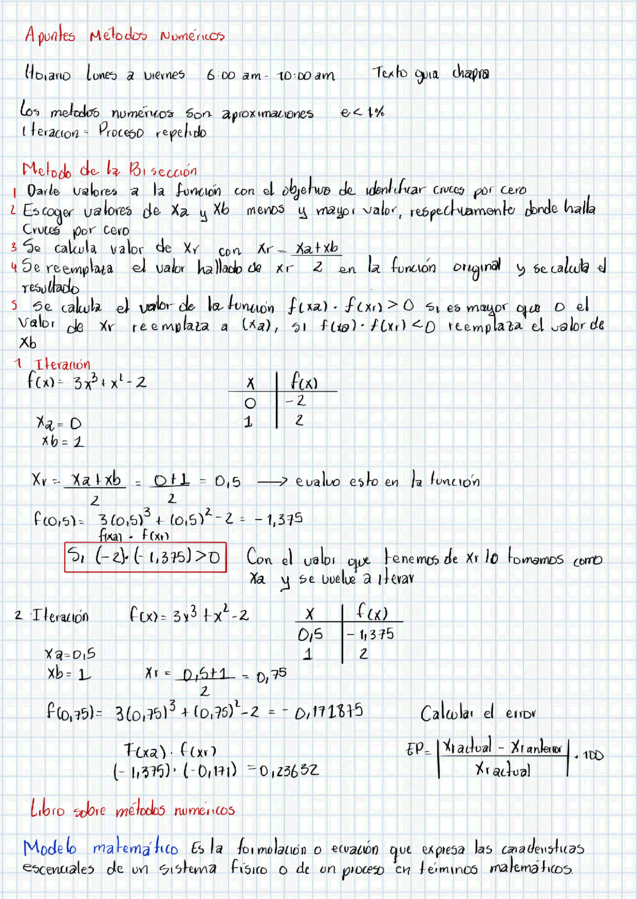 Apuntes Métodos Numéricos
Horario Lunes a viernes 6:00 am - 10:00 am Texto guia chapra
Los metodos numéricos son aproximaciones e<1%
Iteracion = Proceso repetido
Metodo de la Bisección
1 Darle valores a la función con el objetivo de identificar cruces por cero
2 Escoger valores de Xa y Xb menos y mayor valor, respectivamente donde halla
Cruces por cero
3 Se calcula valor de Xr con Xr = (Xa+xb)/2
4 Se reemplaza el valor hallado de xr en la función original y se calcula el
resultado
5 Se calcula el valor de la función f(xa) · f(xr) > 0 si es mayor que 0 el
Valor de Xr reemplaza a (Xa), si f(xa) · f(xr) < 0 reemplaza el valor de
Xb
1 Iteración
f(x) = 3x³ + x² - 2 x f(x)
0 -2
Xa = 0 1 2
xb = 1
Xr = (Xa+xb)/2 = (0+1)/2 = 0,5 → evaluo esto en la función
f(0,5) = 3(0,5)³ + (0,5)² - 2 = -1,375
f(xa) · f(xr)
Si (-2) · (-1,375) > 0 Con el valor que tenemos de xr lo tomamos como
Xa y se vuelve a iterar
2 Iteración f(x) = 3x³ + x² - 2 x f(x)
0,5 -1,375
Xa = 0,5 1 2
xb = 1 Xr = (0,5+1)/2 = 0,75
f(0,75) = 3(0,75)³ + (0,75)² - 2 = -0,171875 Calcular el error
F(xa) · f(xr) EP = |(Xr actual - Xr anterior)/Xr actual| · 100
(-1,375) · (-0,171) = 0,23632
Libro sobre métodos numericos
Modelo matemático Es la formulación o ecuación que expresa las caracteristicas
escenciales de un sistema físico o de un proceso en términos matemáticos